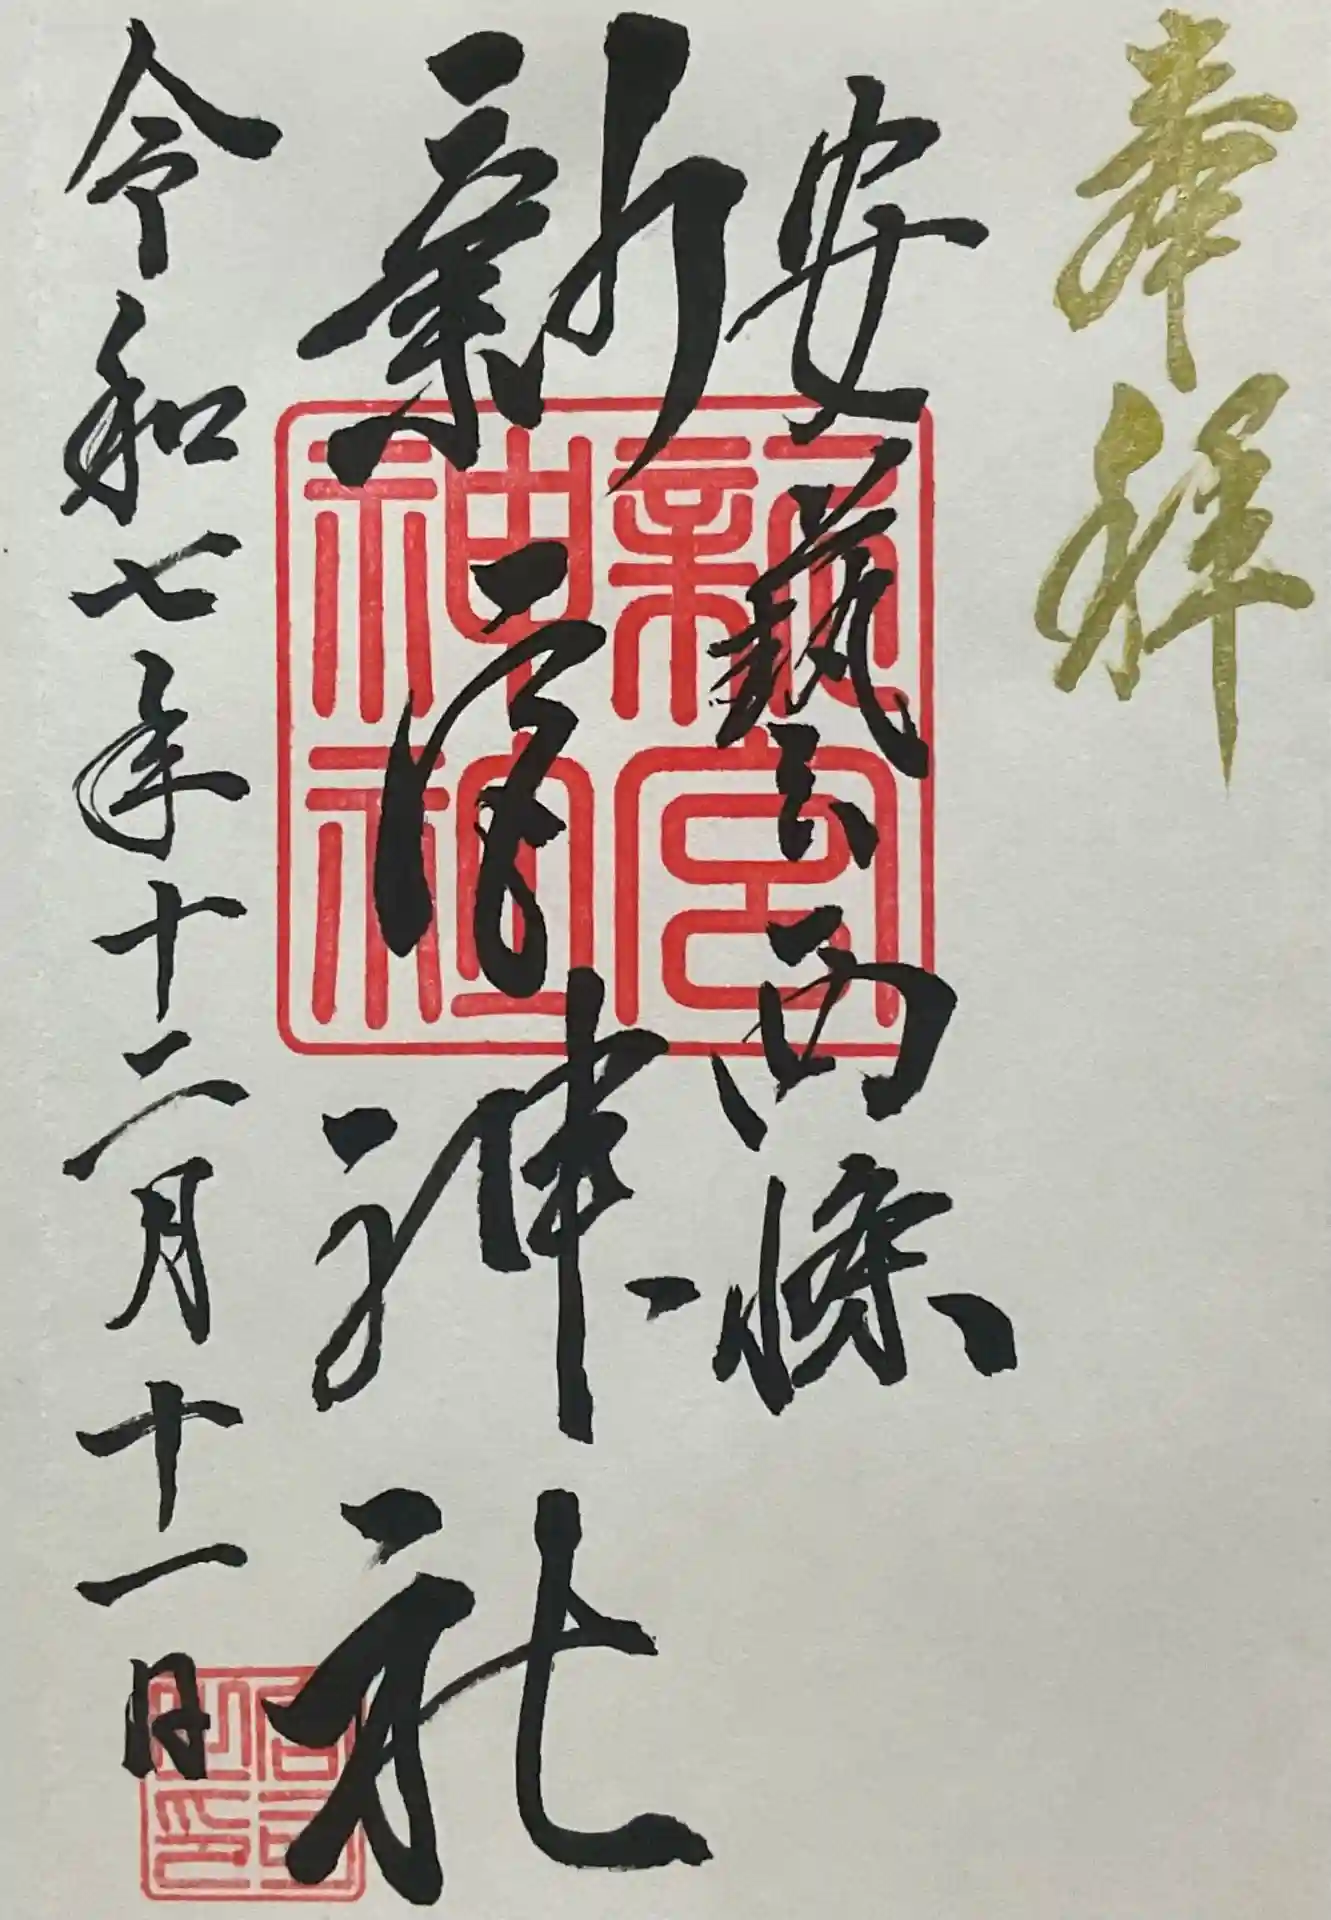 奉拝
安藝西條
新宮神社
令和七年十二月十一日
新宮
神社
宮司
之印